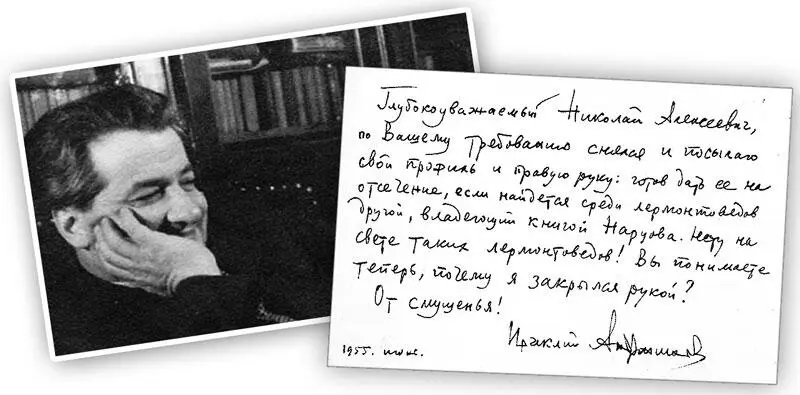 Глубокоуважаемый Николай Алексеевич,
по Вашему требованию снялся и посылаю
свой профиль и правую руку: готов дать ее на
отсечение, если найдется среди лермонтоведов
другой, владеющий книгой Нарцова. Нету на
свете таких лермонтоведов! Вы понимаете
теперь, почему я закрылся рукой?
От смущенья!
Ираклий Андроников
1955. июнь.